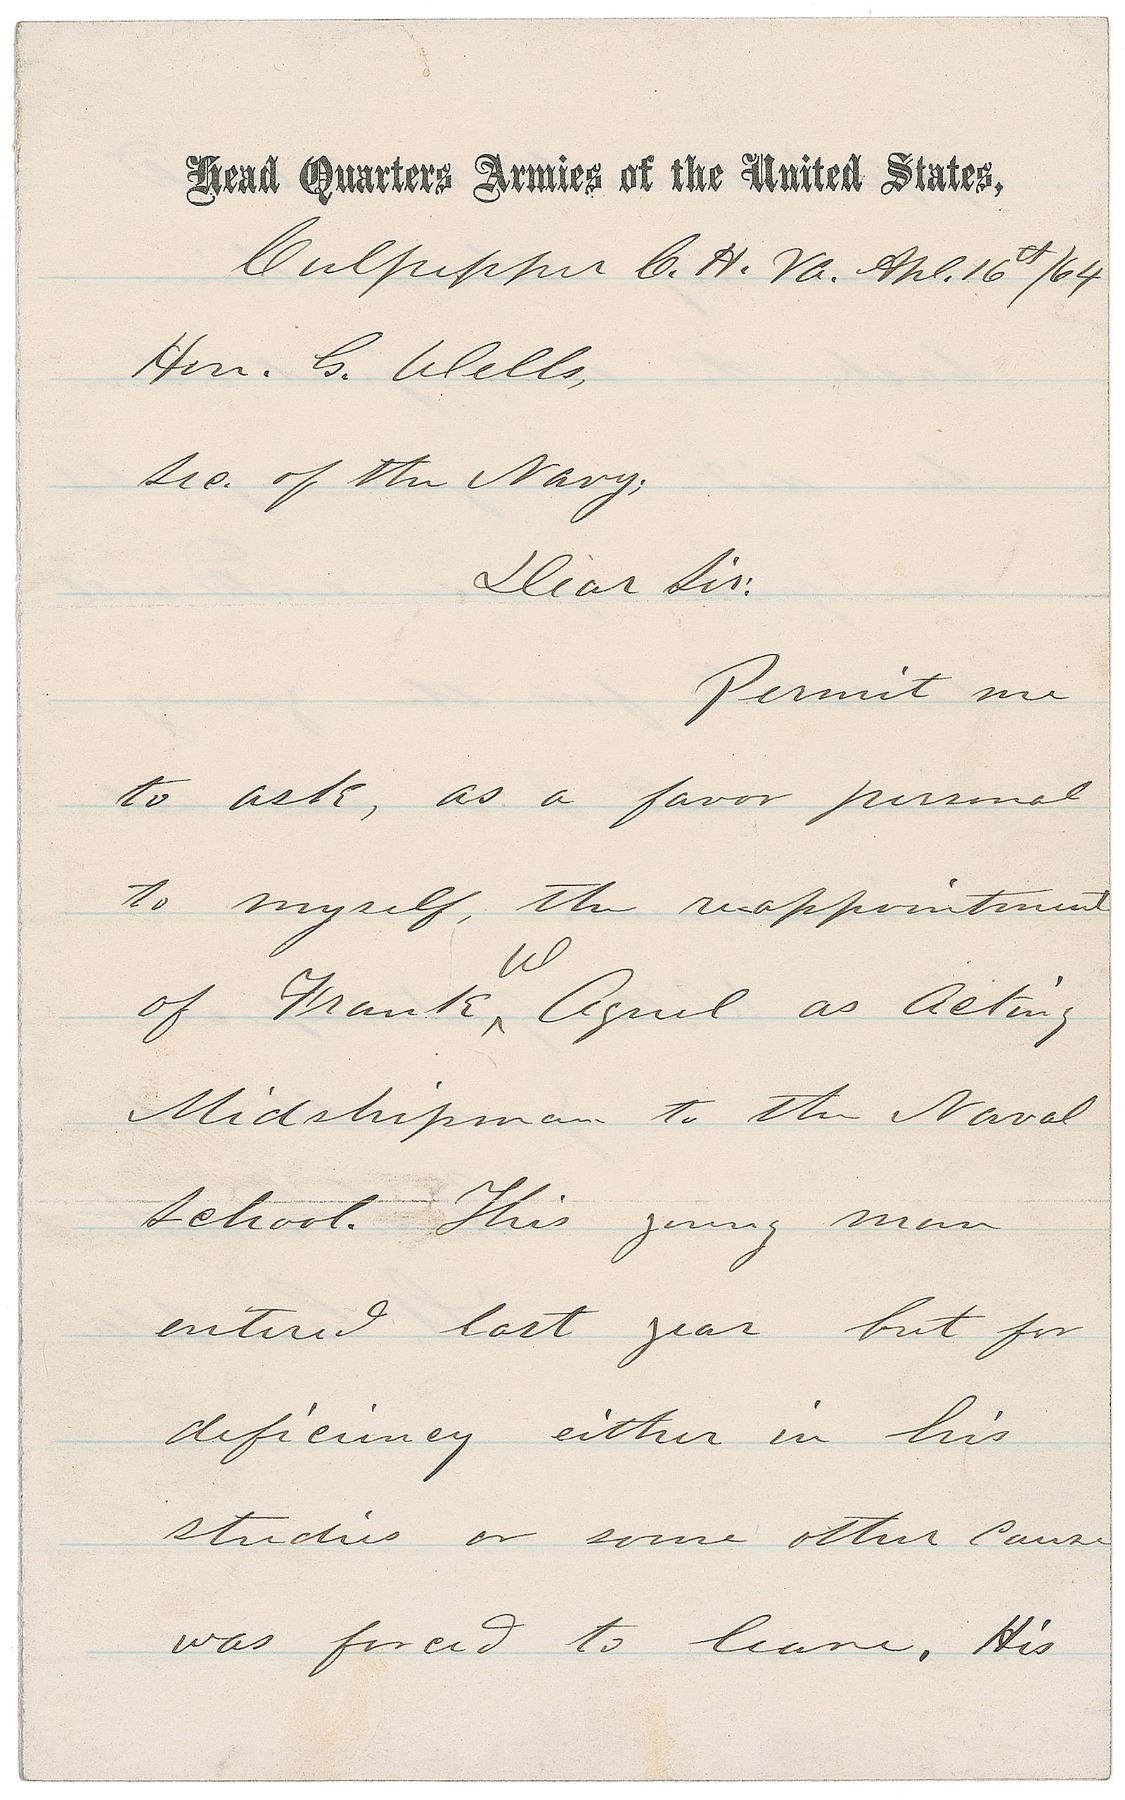 Head Quarters Armies of the United States,
Culpepper C. H. Va. Apl. 16th/64
Hon. G. Wells,
Sec. of the Navy;
Dear Sir:
Permit me
to ask, as a favor personal
to myself, the reappointment
of Frank W Agnel as Acting
Midshipman to the Naval
School. This young man
entered last year but for
deficiency either in his
studies or some other cause
was forced to leave. His